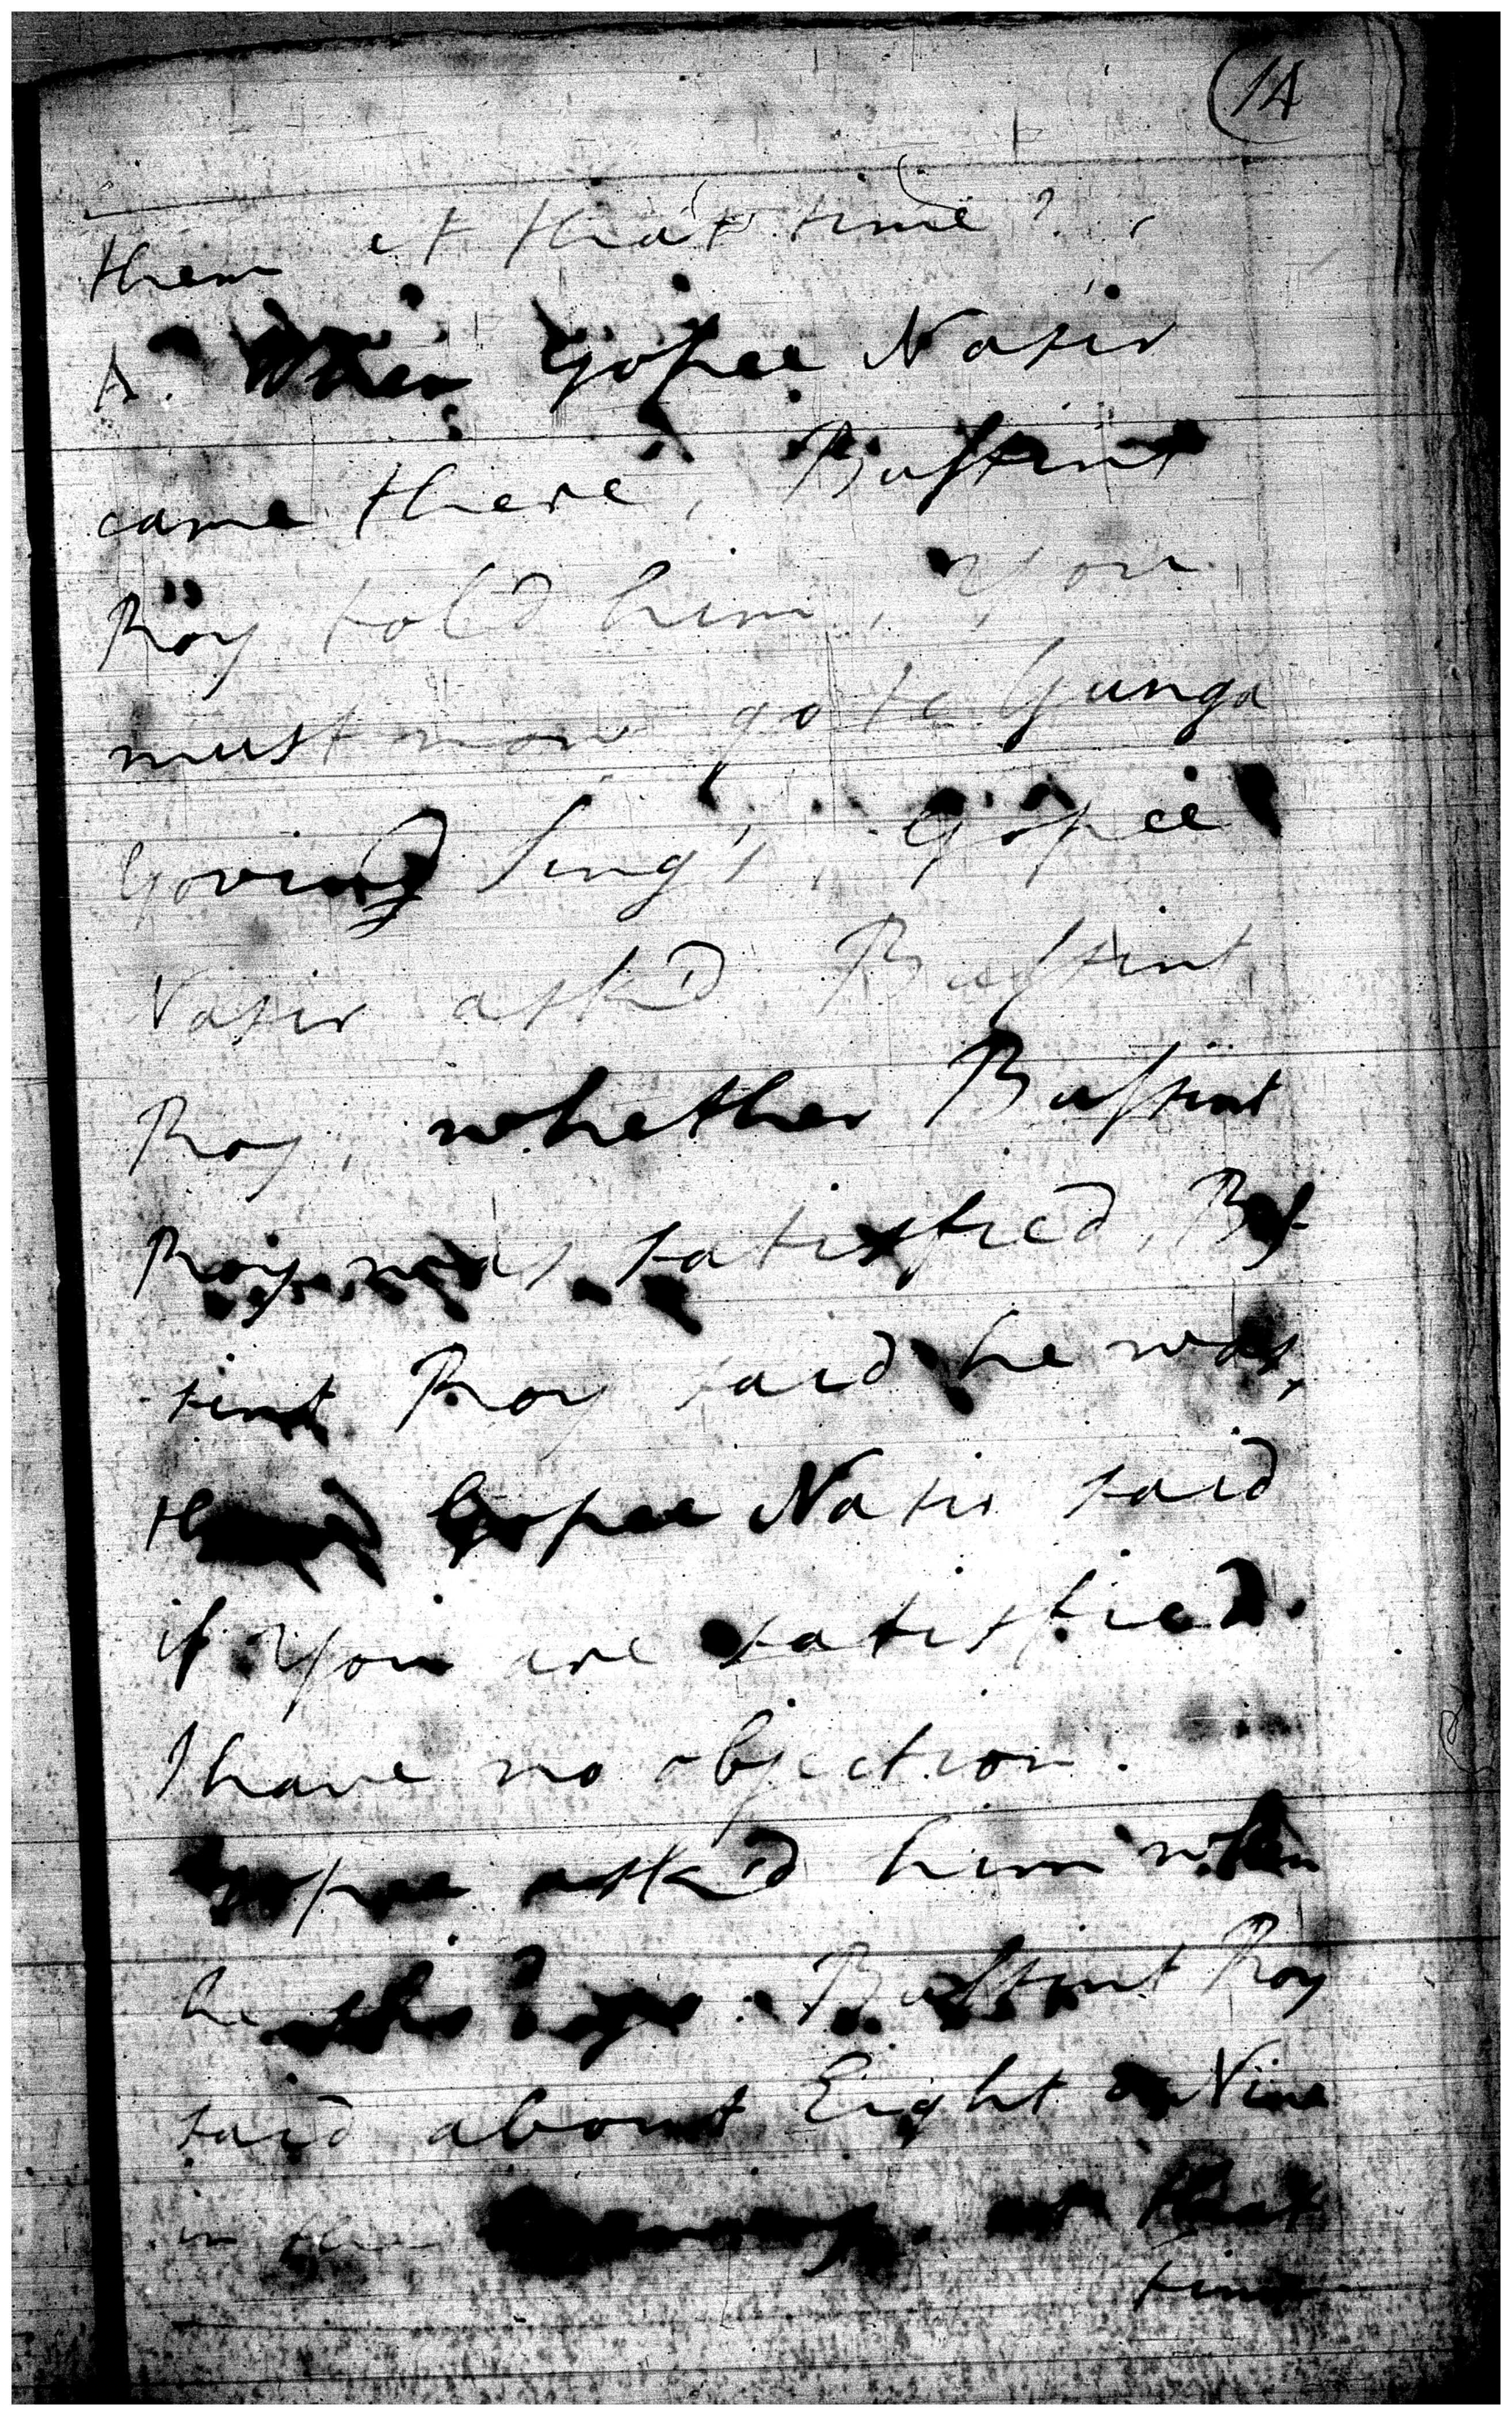 14
them at that time?
A. When Gopee Nasir
came there, Bussint
Roy told him, You
must now go to Gunga
Govind Sing's, Gopee
Nasir ask'd Bussint
Roy, whether Bussint
Roy was satisfied, Bus-
sint Roy said he was,
Gopee Nasir said
if you are satisfied
I have no objection.
Gopee ask'd him when
he Bussint Roy
said about Eight or Nine
in the at that
time